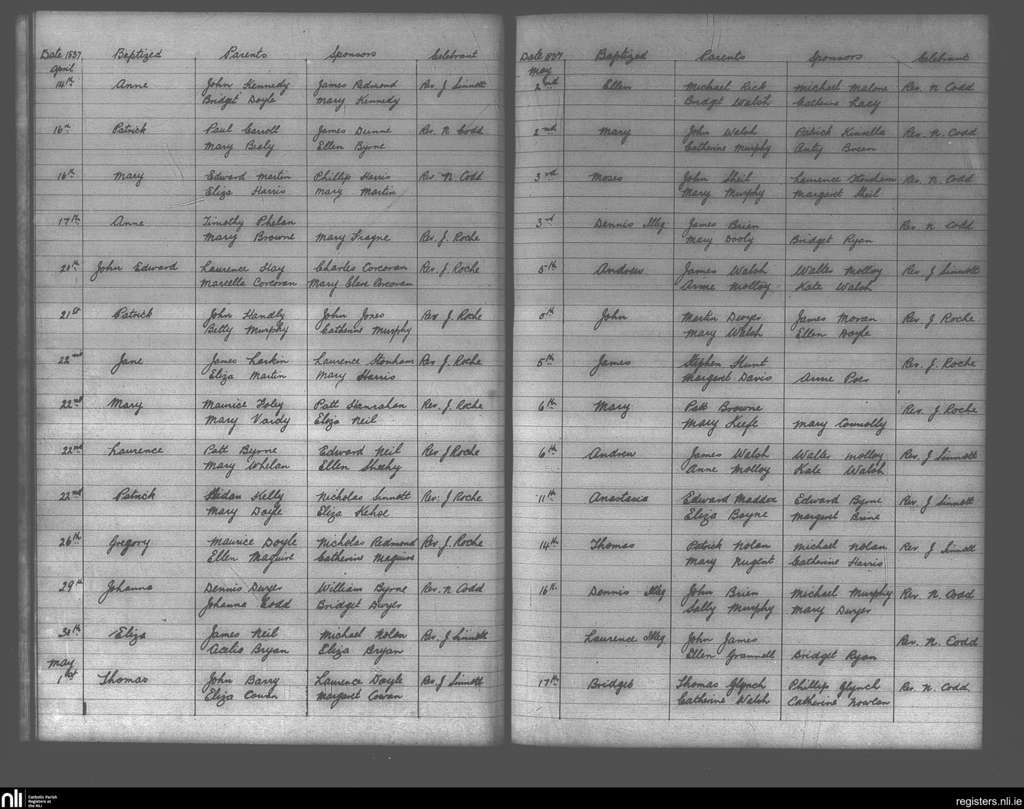 Date 1837 Baptized Parents Sponsors Celebrant
April
14th Anne John Kennedy James Redmond Rev. J Sinnott
Bridget Doyle Mary Kennedy
16th Patrick Paul Carroll James Dunne Rev. N. Codd
Mary Ellen Byrne
16th Mary Edward Martin Phillip Harris Rev. N. Codd
Eliza Harris Mary Martin
17th Anne Timothy Phelan
Mary Browne Mary Rev. J. Roche
John Edward Laurence Hay Charles Corcoran Rev. J. Roche
Marcella Corcoran Mary Corcoran
21st Patrick John Handly John Jones Rev. J. Roche
Betty Murphy Catherine Murphy
22nd Jane James Larkin Laurence Stonham Rev. J. Roche
Eliza Martin Mary Harris
22nd Mary Maurice Foley Patt Hanrahan Rev. J. Roche
Mary Vardy Eliza Neil
22nd Laurence Patt Byrne Edward Neil Rev. J Roche
Mary Whelan Ellen Sheehy
22nd Patrick Kelly Nicholas Sinnott Rev. J. Roche
Mary Doyle Eliza Kehoe
26th Gregory Maurice Doyle Nicholas Redmond Rev. J. Roche
Ellen Maguire Catherine Maguire
29th Johanna Dennis Dwyer William Byrne Rev. N Codd
Johanna Codd Bridget Dwyer
30th Eliza James Neil Michael Nolan Rev. J Sinnott
Bryan Eliza Bryan
May
1st Thomas John Barry Laurence Doyle Rev J Sinnott
Eliza Cowan Margaret Cowan
Date 1837 Baptized Parents Sponsors Celebrant
May
2nd Ellen Michael Rick Michael Malone Rev. N Codd
Bridget Walsh Catherine Lacy
2nd Mary John Walsh Patrick Kinsella Rev. N. Codd
Catherine Murphy Anty Breen
3rd Moses John Sheil Laurence Stonham Rev. N. Codd
Mary Murphy Margaret Sheil
3rd Dennis Illeg James Brien Rev. N Codd
Mary Dooly Bridget Ryan
5th Andrew James Walsh Walter Molloy Rev. J Sinnott
Anne Molloy Kate Walsh
John Martin Dwyer James Moran Rev. J Roche
Mary Walsh Ellen Doyle
5th James Stephen Hunt Rev. J. Roche
Margaret Davis Anne
6th Mary Patt Browne Rev. J Roche
Mary Keefe Mary Connolly
6th Andrew James Walsh Walter Molloy Rev. J Sinnott
Anne Molloy Kate Walsh
11th Anastasia Edward Maddox Edward Byrne Rev. J Sinnott
Eliza Bayne Margaret Brine
14th Thomas Patrick Nolan Michael Nolan Rev. J Sinnott
Mary Nugent Catherine Harris
16th Dennis Illeg John Brien Michael Murphy Rev. N. Codd
Sally Murphy Mary Dwyer
Laurence Illeg John James Rev. N. Codd
Ellen Grannell Bridget Ryan
17th Bridget Thomas Glynch Phillip Glynch Rev. N. Codd
Catherine Walsh Catherine Nowlan
nli Catholic Parish
Registers at
the NLI
registers.nli.ie